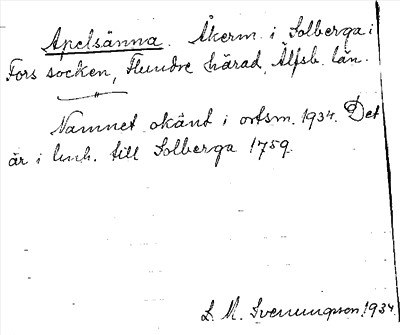 Apelsänna. Åkerm. i Solberga i
Fors socken, Flundre härad, Älfsb. län.
Namnet okänt i ortsm. 1934. Det
är i lmh. till Solberga 1759.
L. M. Svenungsson. 1934.